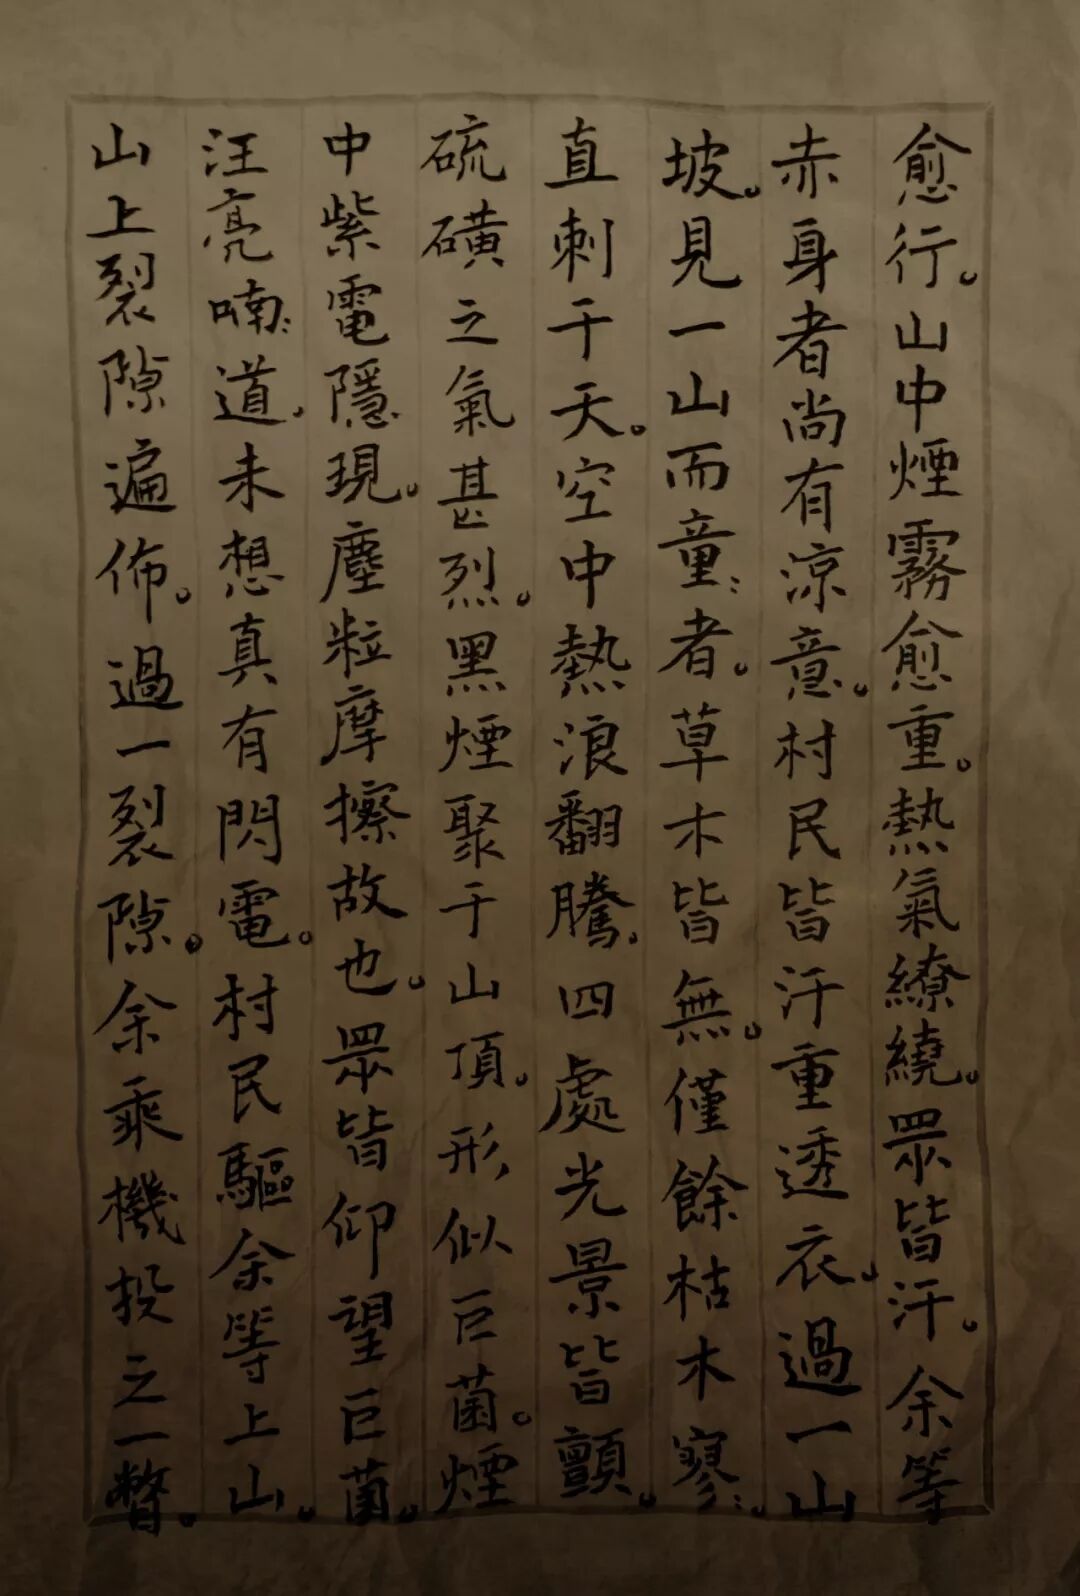 愈行。山中煙霧愈重。熱氣繚繞。眾皆汗。余等
赤身者尚有涼意。村民皆汗重透衣。過一山
坡。見一山而童:者。草木皆無。僅餘枯木寥:。
直刺于天。空中熱浪翻騰。四處光景皆顫。
硫磺之氣甚烈。黑煙聚于山頂。形似巨菌。煙
中紫電隱現。塵粒摩擦故也。眾皆仰望巨菌。
汪亮喃:道。未想真有閃電。村民驅余等上山。
山上裂隙遍佈。過一裂隙。余乘機投之一瞥。